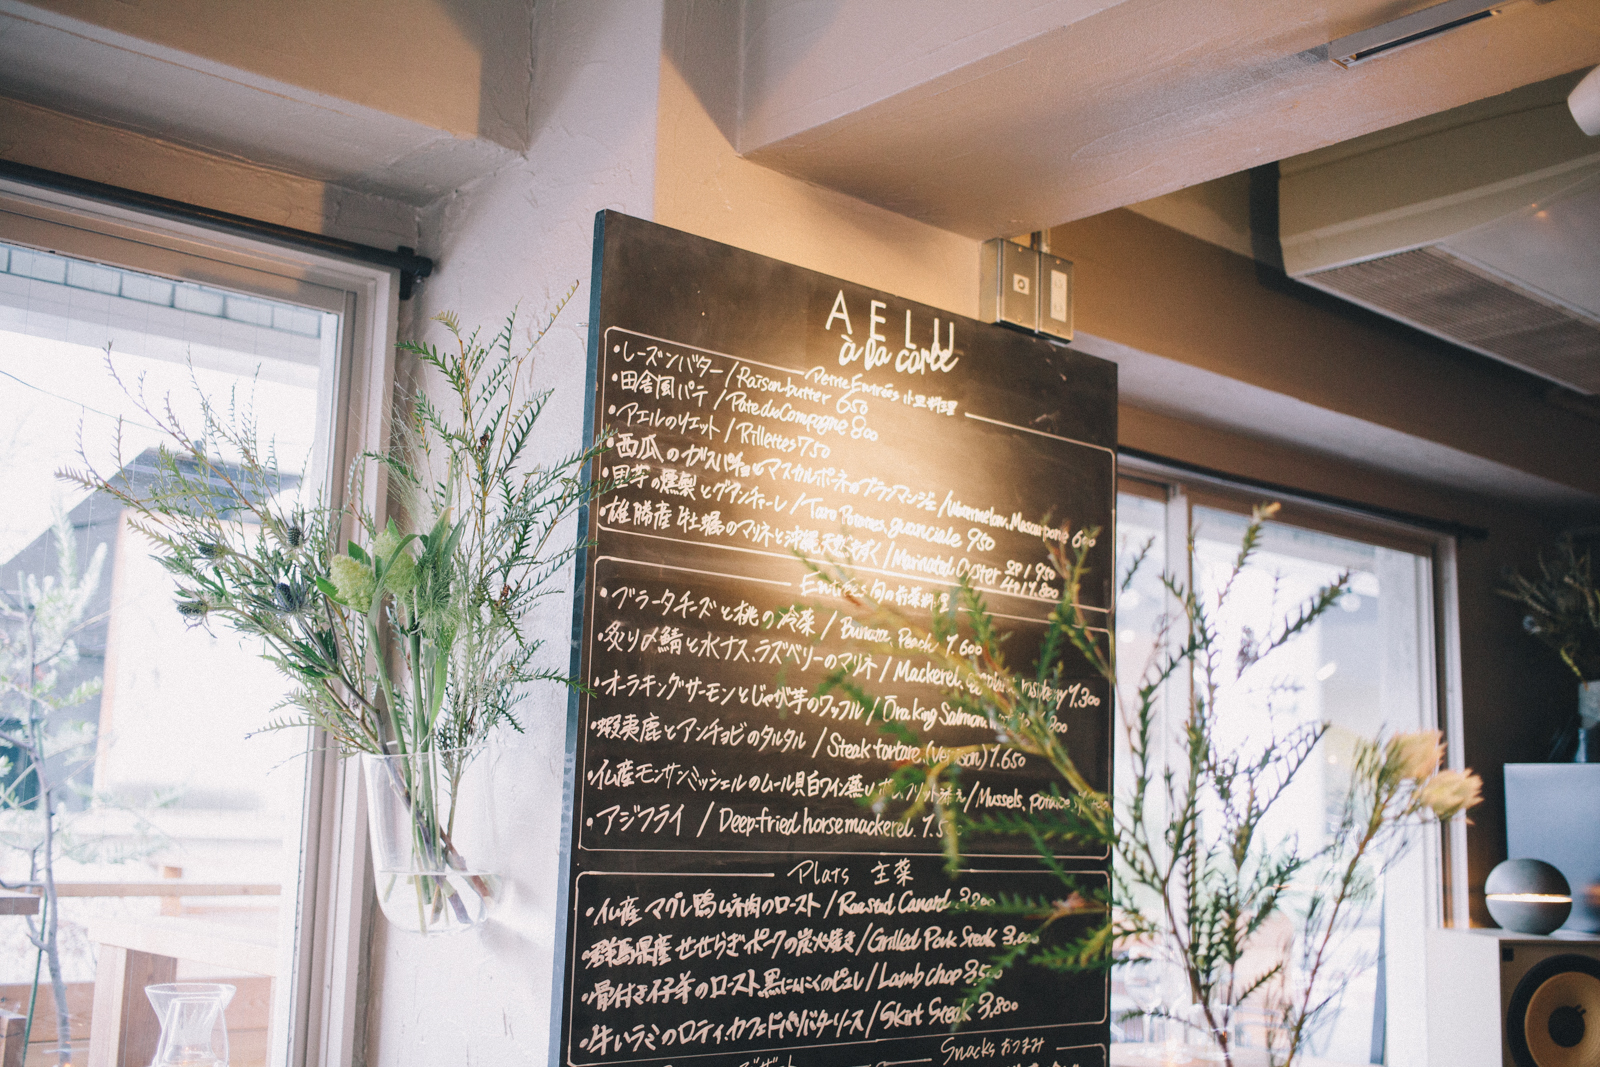 AELU
à la carte
Petite Entrées 小皿料理
・レーズンバター / Raisan butter 650
・田舎風パテ / Pate de Compagne 800
・アエルのリエット / Rillettes 750
・西瓜のガスパチョとマスカルポーネのブランマンジェ / Watermelon, Mascarpone 600
・里芋の燻製とグアンチャーレ / Taro Potatoes, guanciale 950
・雄勝産牡蠣のマリネと沖縄天然もずく / Marinated Oyster 2P / 950 4P / 1.800
Entrées 旬の前菜料理
・ブラータチーズと桃の冷菜 / Burrata Peach 1.600
・炙り〆鯖と水ナス、ラズベリーのマリネ / Mackerel, raspberry 1.300
・オーラキングサーモンとじゃが芋のワッフル / Ora king Salmon,
・蝦夷鹿とアンチョビのタルタル / Steak tartare (venison) 1.650
・仏産モンサンミッシェルのムール貝白ワイン蒸し フリット添え / Mussels,
・アジフライ / Deep-fried horse mackerel.
Plats 主菜
・仏産マグレ鴨ムネ肉のロースト / Roasted Canard 3.200
・群馬県産せせらぎポークの炭火焼き / Grilled Pork Steak 3,000
・骨付き仔羊のロースト黒にんにくのピュレ / Lamb chop 3.500
・牛ハラミのロティ、カフェドパリバターソース / Skirt Steak 3,800
Snacks おつまみ